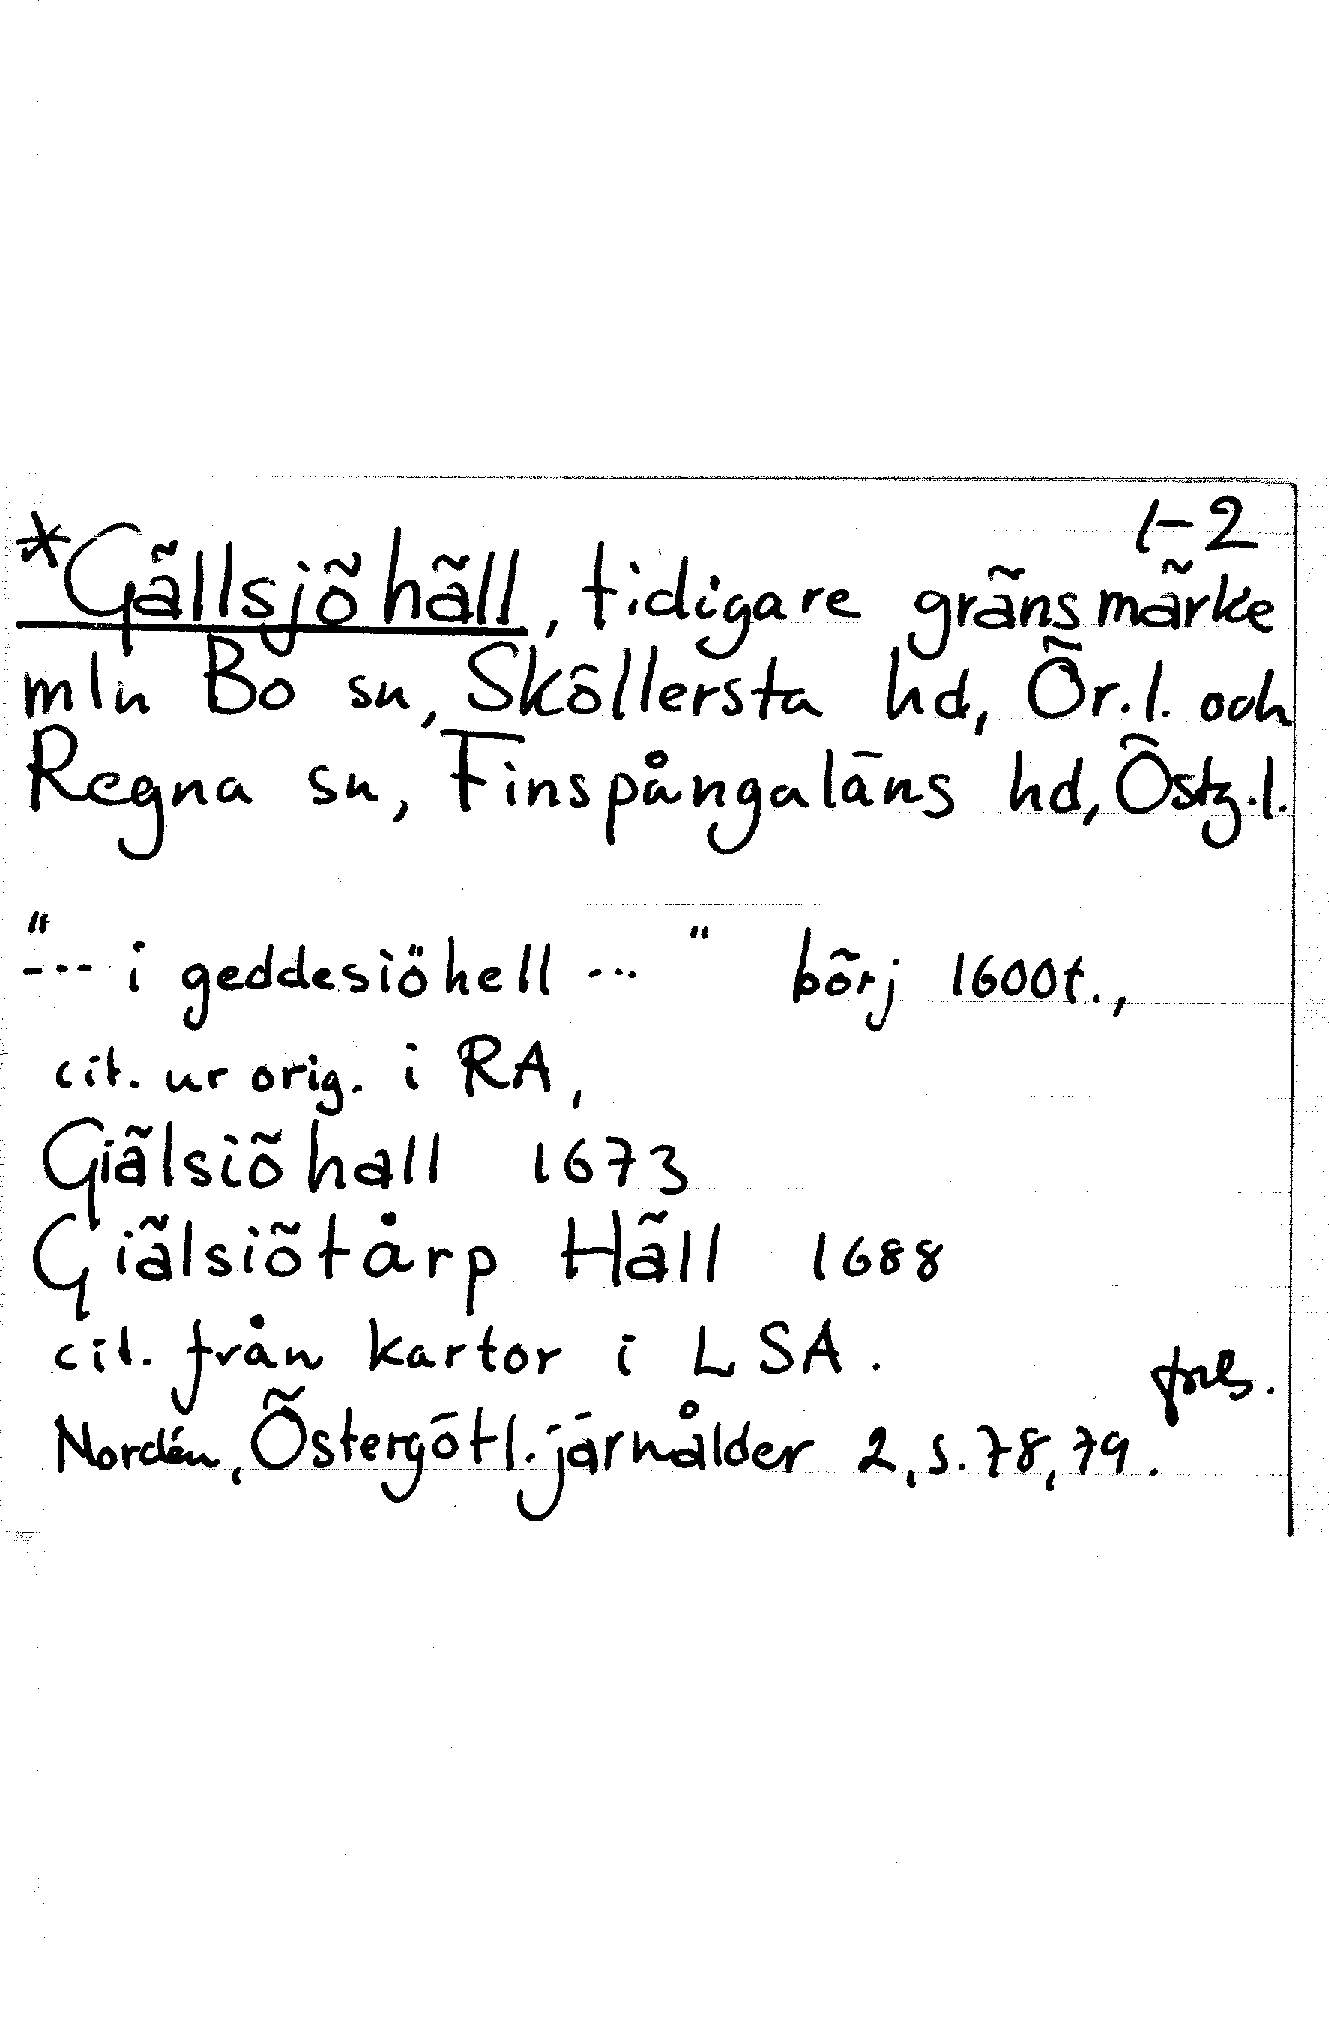 1-2
*Gällsjöhäll, tidigare gränsmärke
mln Bo sn, Sköllersta hd, Ör.l. och
Regna sn, Finspångaläns hd, Östg.l.
"--- i geddesiöhell ... " börj 1600t.,
cit. ur orig. i RA,
Giälsiöhall 1673
Giälsiötårp Häll 1688
cit. från kartor i LSA.
forts.
Nordén, Östergötl. järnålder 2, s. 78, 79.